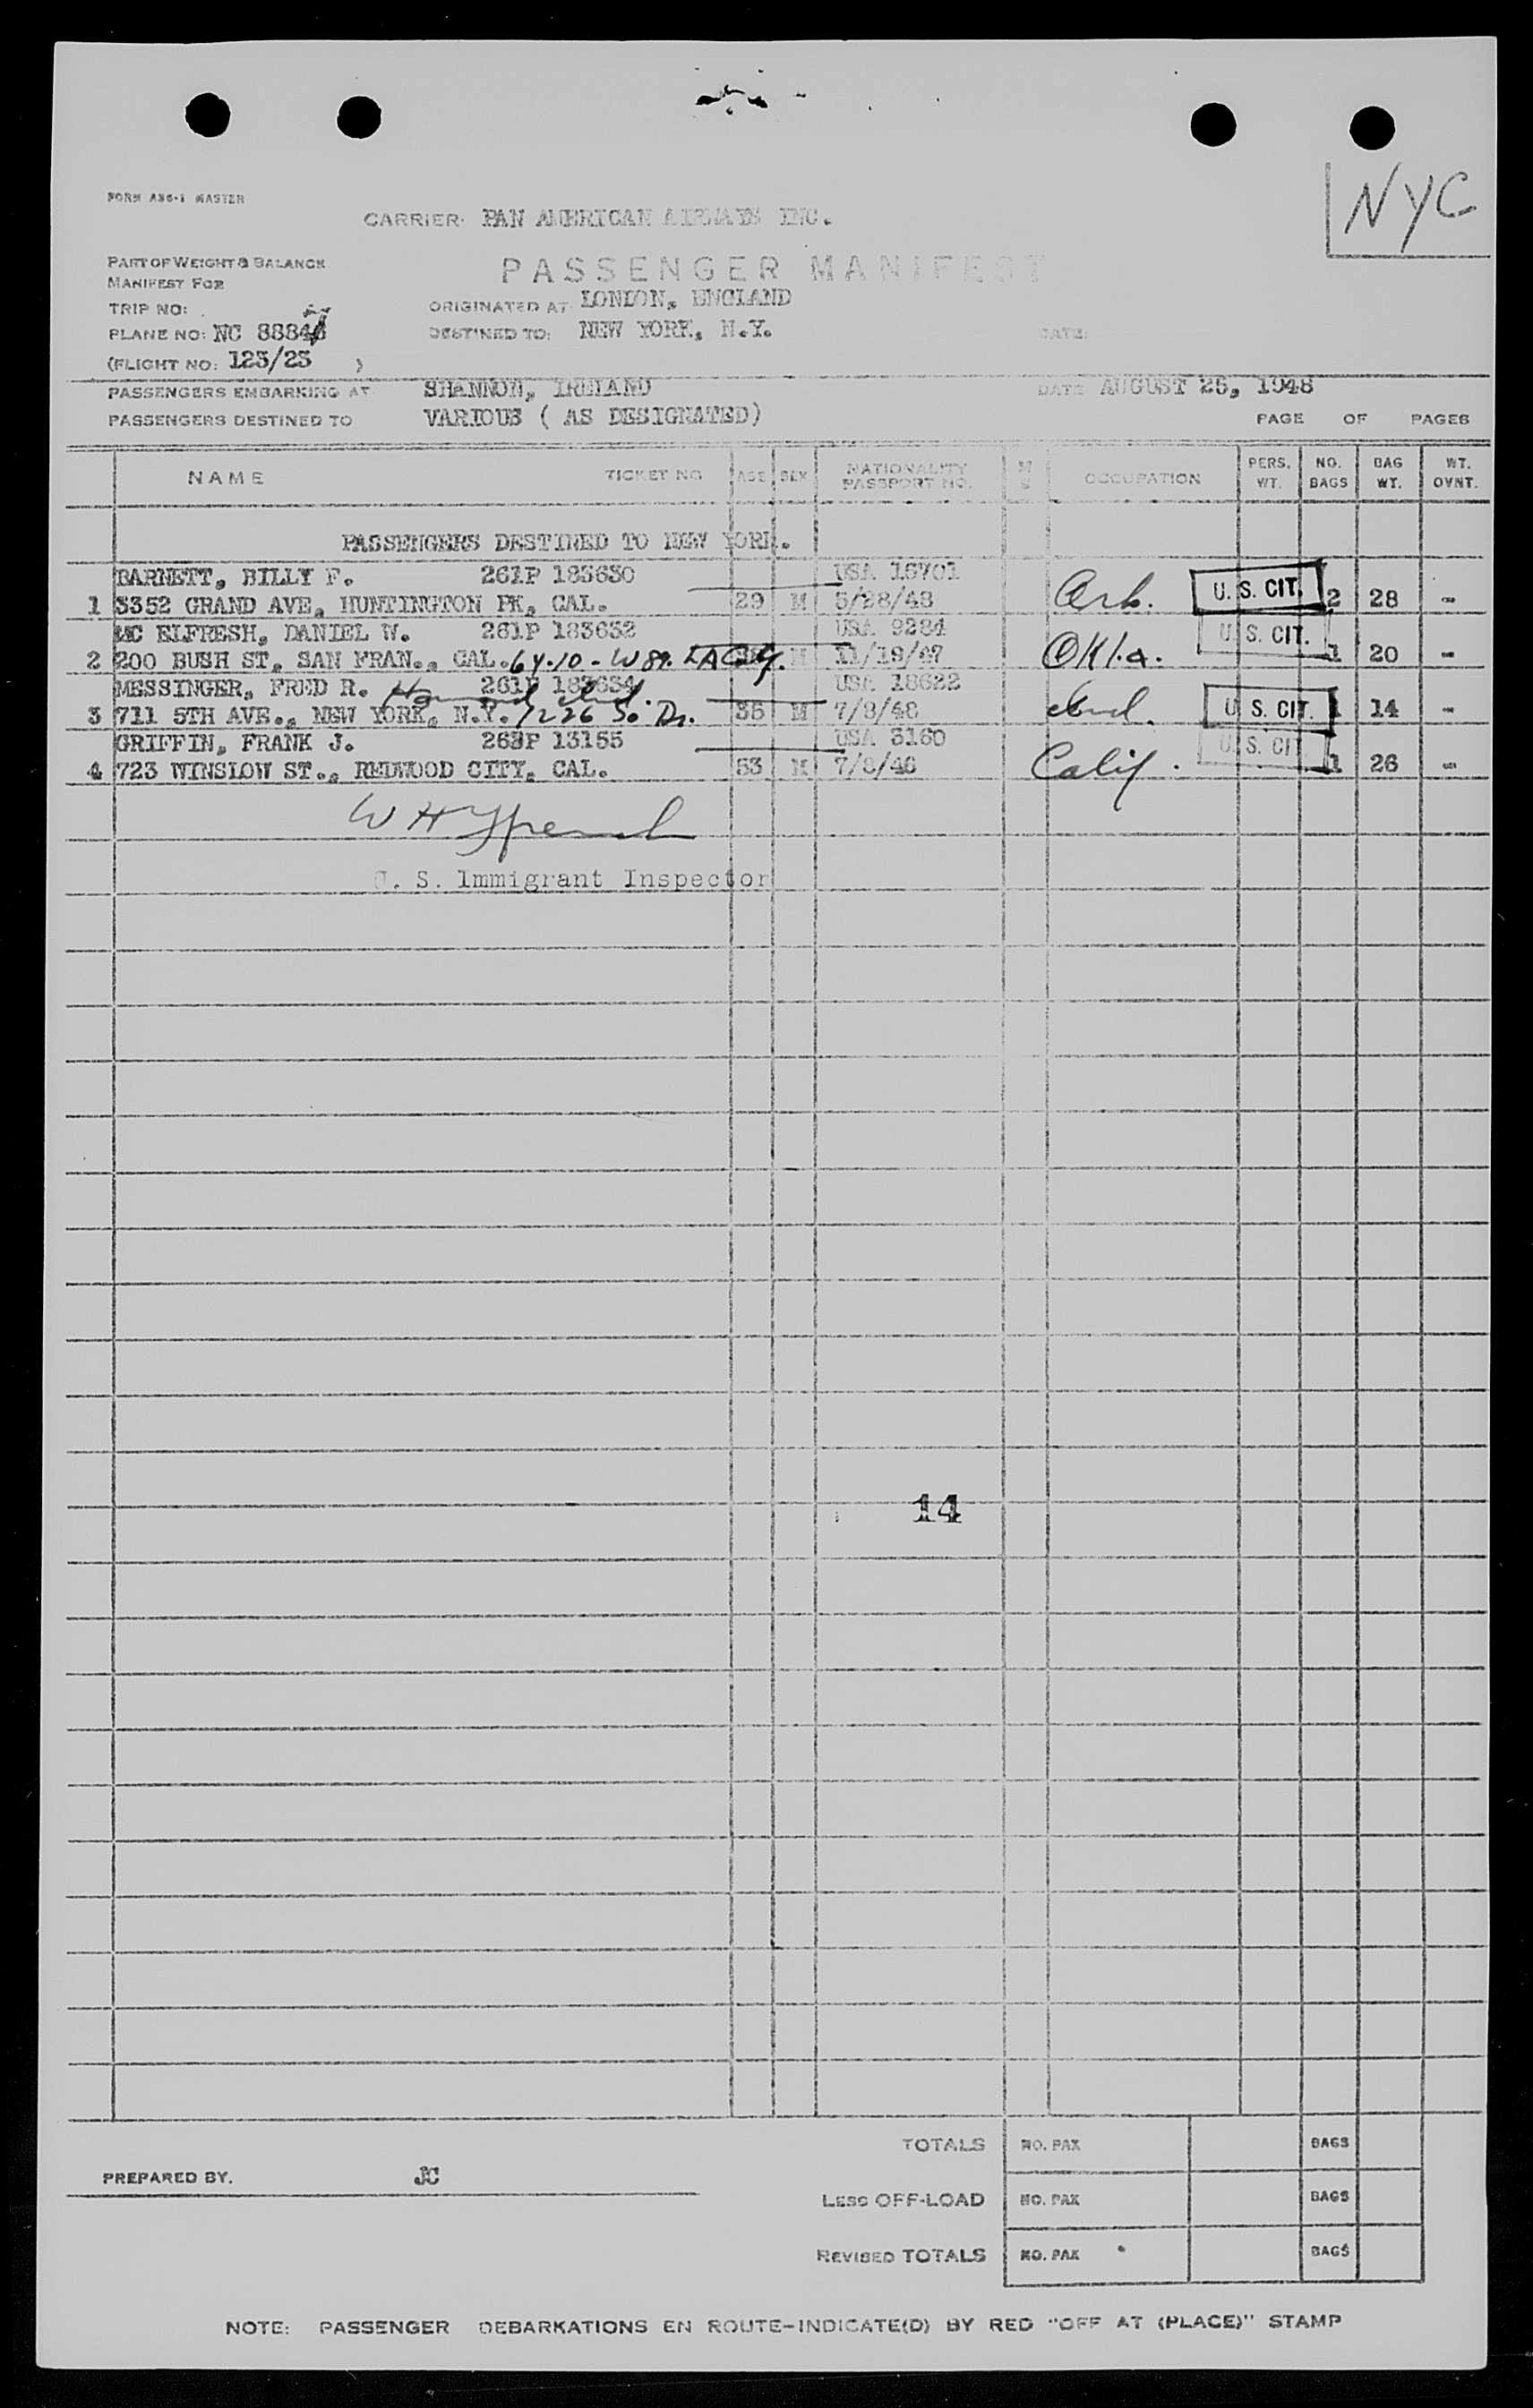 NYC
FORM A86-1 MASTER
CARRIER: PAN AMERICAN AIRWAYS INC.
PART OF WEIGHT & BALANCE
PASSENGER MANIFEST
MANIFEST FOR
TRIP NO:
ORIGINATED AT: LONDON, ENGLAND
PLANE NO: NC 8884
DESTINED TO: NEW YORK, N.Y.
DATE:
(FLIGHT NO: 123/25 )
PASSENGERS EMBARKING AT SHANNON, IRELAND DATE AUGUST 25, 1948
PASSENGERS DESTINED TO VARIOUS ( AS DESIGNATED) PAGE OF PAGES
NAME TICKET NO. AGE SEX NATIONALITY PASSPORT NO. M S OCCUPATION PERS. WT. NO. BAGS BAG WT. WT. OVNT.
PASSENGERS DESTINED TO NEW YORK.
BARNETT, BILLY F. 261P 183630 USA 16701
1 3352 GRAND AVE, HUNTINGTON PK, CAL. 29 M 5/28/48 Ark. U.S. CIT. 2 28 -
MC ELFRESH, DANIEL W. 261P 183632 USA 9284
2 200 BUSH ST, SAN FRAN., CAL. 64.10 - W 89. LA Cal. M 11/19/47 Okla. U.S. CIT. 1 20 -
MESSINGER, FRED R. 261P 183634 USA 18622
3 711 5TH AVE., NEW YORK, N.Y. 1226 So. Dr. 35 M 7/8/48 Ind. U.S. CIT. 1 14 -
GRIFFIN, FRANK J. 263P 13155 USA 3160
4 723 WINSLOW ST., REDWOOD CITY, CAL. 53 M 7/8/46 Calif. U.S. CIT. 1 26 -
U. S. Immigrant Inspector
14
TOTALS NO. PAX BAGS
PREPARED BY. JC
LESS OFF-LOAD NO. PAX BAGS
REVISED TOTALS NO. PAX BAGS
NOTE: PASSENGER DEBARKATIONS EN ROUTE-INDICATE(D) BY RED "OFF AT (PLACE)" STAMP